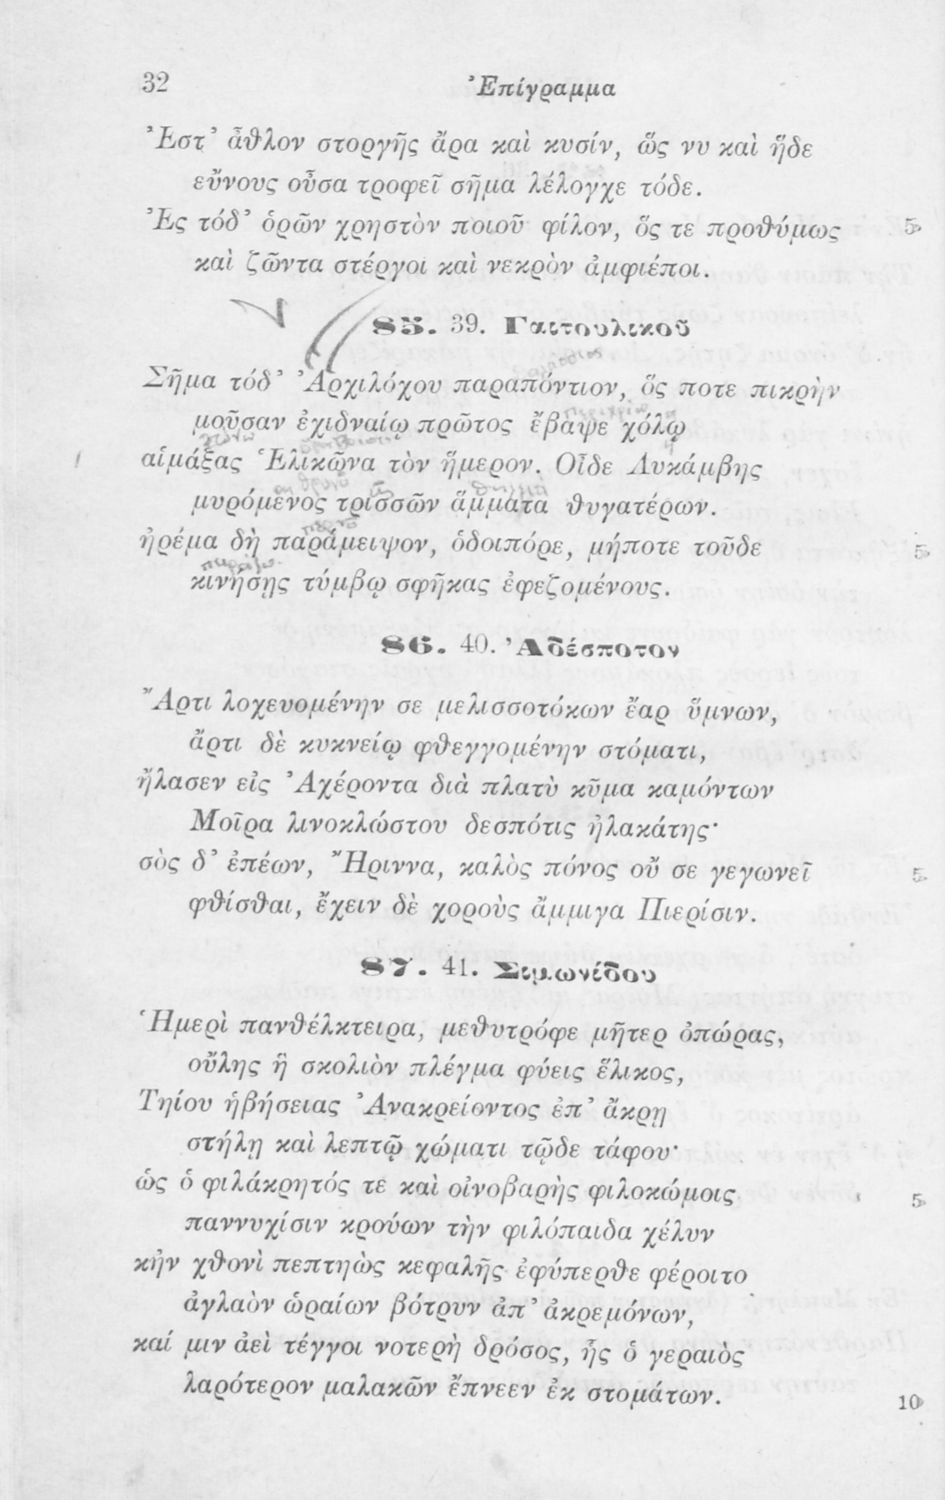 32
Ἐπίγραμμα
Ἔστ᾽ ἆθλον στοργῆς ἄρα καὶ κυσίν, ὥς νυ καὶ ἥδε
εὔνους οὖσα τροφεῖ σῆμα λέλογχε τόδε.
Ἐς τόδ᾽ ὁρῶν χρηστὸν ποιοῦ φίλον, ὅς τε προθύμως 5
καὶ ζῶντα στέργοι καὶ νεκρὸν ἀμφιέποι.
85. 39. Γαιτουλικοῦ
Σῆμα τόδ᾽ Ἀρχιλόχου παραπόντιον, ὅς ποτε πικρὴν
μοῦσαν ἐχιδναίῳ πρῶτος ἔβαψε χόλῳ
αἱμάξας Ἑλικῶνα τὸν ἥμερον. Οἶδε Λυκάμβης
μυρόμενος τρισσῶν ἅμματα θυγατέρων.
ἠρέμα δὴ παράμειψον, ὁδοιπόρε, μήποτε τοῦδε 5
κινήσῃς τύμβῳ σφῆκας ἐφεζομένους.
86. 40. Ἀδέσποτον
Ἄρτι λοχευομένην σε μελισσοτόκων ἔαρ ὕμνων,
ἄρτι δὲ κυκνείῳ φθεγγομένην στόματι,
ἤλασεν εἰς Ἀχέροντα διὰ πλατὺ κῦμα καμόντων
Μοῖρα λινοκλώστου δεσπότις ἠλακάτης·
σὸς δ᾽ ἐπέων, Ἤριννα, καλὸς πόνος οὔ σε γεγωνεῖ 5
φθίσθαι, ἔχειν δὲ χοροὺς ἄμμιγα Πιερίσιν.
87. 41. Σιμωνίδου
Ἡμερὶ πανθέλκτειρα, μεθυτρόφε μῆτερ ὀπώρας,
οὔλης ἣ σκολιὸν πλέγμα φύεις ἕλικος,
Τηίου ἡβήσειας Ἀνακρείοντος ἐπ᾽ ἄκρῃ
στήλῃ καὶ λεπτῷ χώματι τῷδε τάφου·
ὡς ὁ φιλάκρητός τε καὶ οἰνοβαρὴς φιλοκώμοις 5
παννυχίσιν κρούων τὴν φιλόπαιδα χέλυν
κἠν χθονὶ πεπτηὼς κεφαλῆς ἐφύπερθε φέροιτο
ἀγλαὸν ὡραίων βότρυν ἀπ᾽ ἀκρεμόνων,
καί μιν ἀεὶ τέγγοι νοτερὴ δρόσος, ἧς ὁ γεραιὸς
λαρότερον μαλακῶν ἔπνεεν ἐκ στομάτων. 10